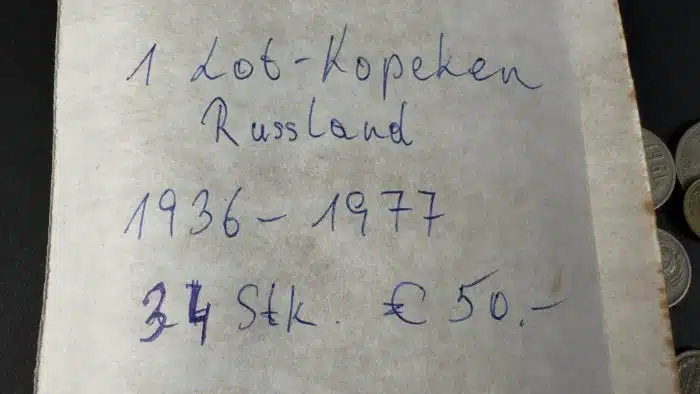 1 Lot-Kopeken
Russland
1936 - 1977
34 Stk. € 50.-